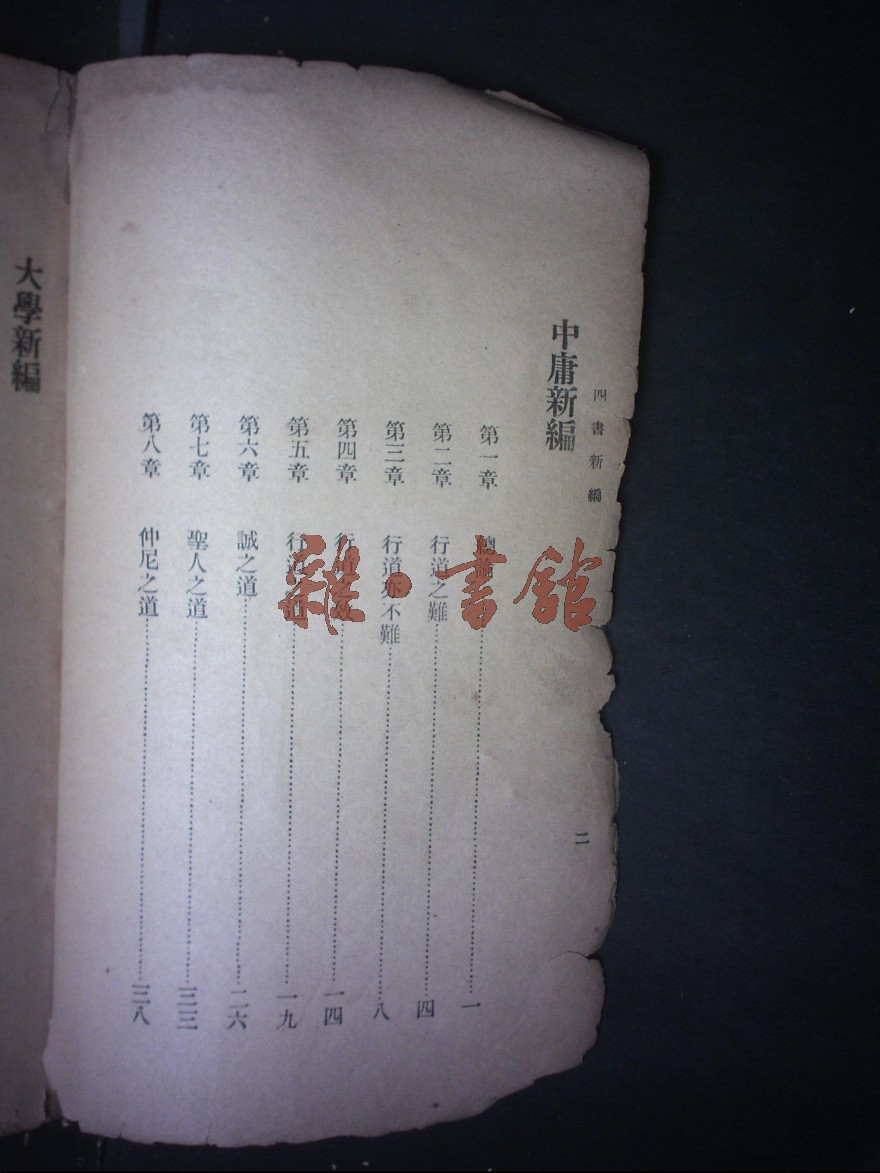 四書新編
二
中庸新編
第一章 總論 一
第二章 行道之難 四
第三章 行道亦不難 八
第四章 行道之效 一四
第五章 行道之道 一九
第六章 誠之道 二六
第七章 聖人之道 三三
第八章 仲尼之道 三八
大學新編
雜·書館